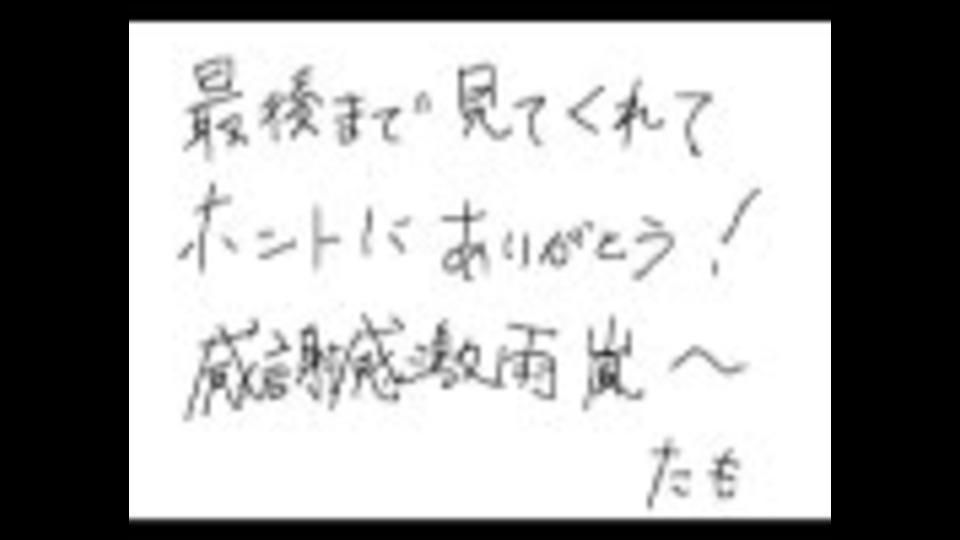 最後まで見てくれて
ホントにありがとう!
感謝感激雨嵐〜
たも